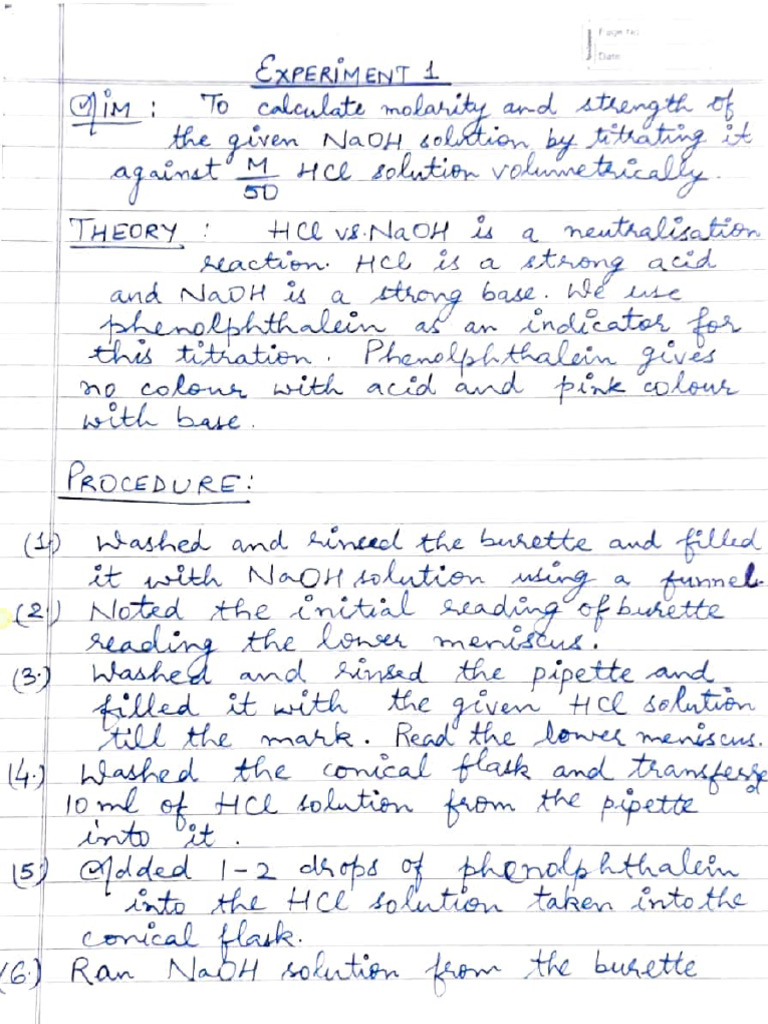 Page No.
Date
EXPERIMENT 1
AIM : To calculate molarity and strength of
the given NaOH solution by titrating it
against M/50 HCl solution volumetrically.
THEORY : HCl vs. NaOH is a neutralisation
reaction. HCl is a strong acid
and NaOH is a strong base. We use
phenolphthalein as an indicator for
this titration. Phenolphthalein gives
no colour with acid and pink colour
with base.
PROCEDURE :
(1.) Washed and rinsed the burette and filled
it with NaOH solution using a funnel.
(2.) Noted the initial reading of burette
reading the lower meniscus.
(3.) Washed and rinsed the pipette and
filled it with the given HCl solution
till the mark. Read the lower meniscus.
(4.) Washed the conical flask and transferred
10 ml of HCl solution from the pipette
into it.
(5.) Added 1-2 drops of phenolphthalein
into the HCl solution taken into the
conical flask.
(6.) Ran NaOH solution from the burette